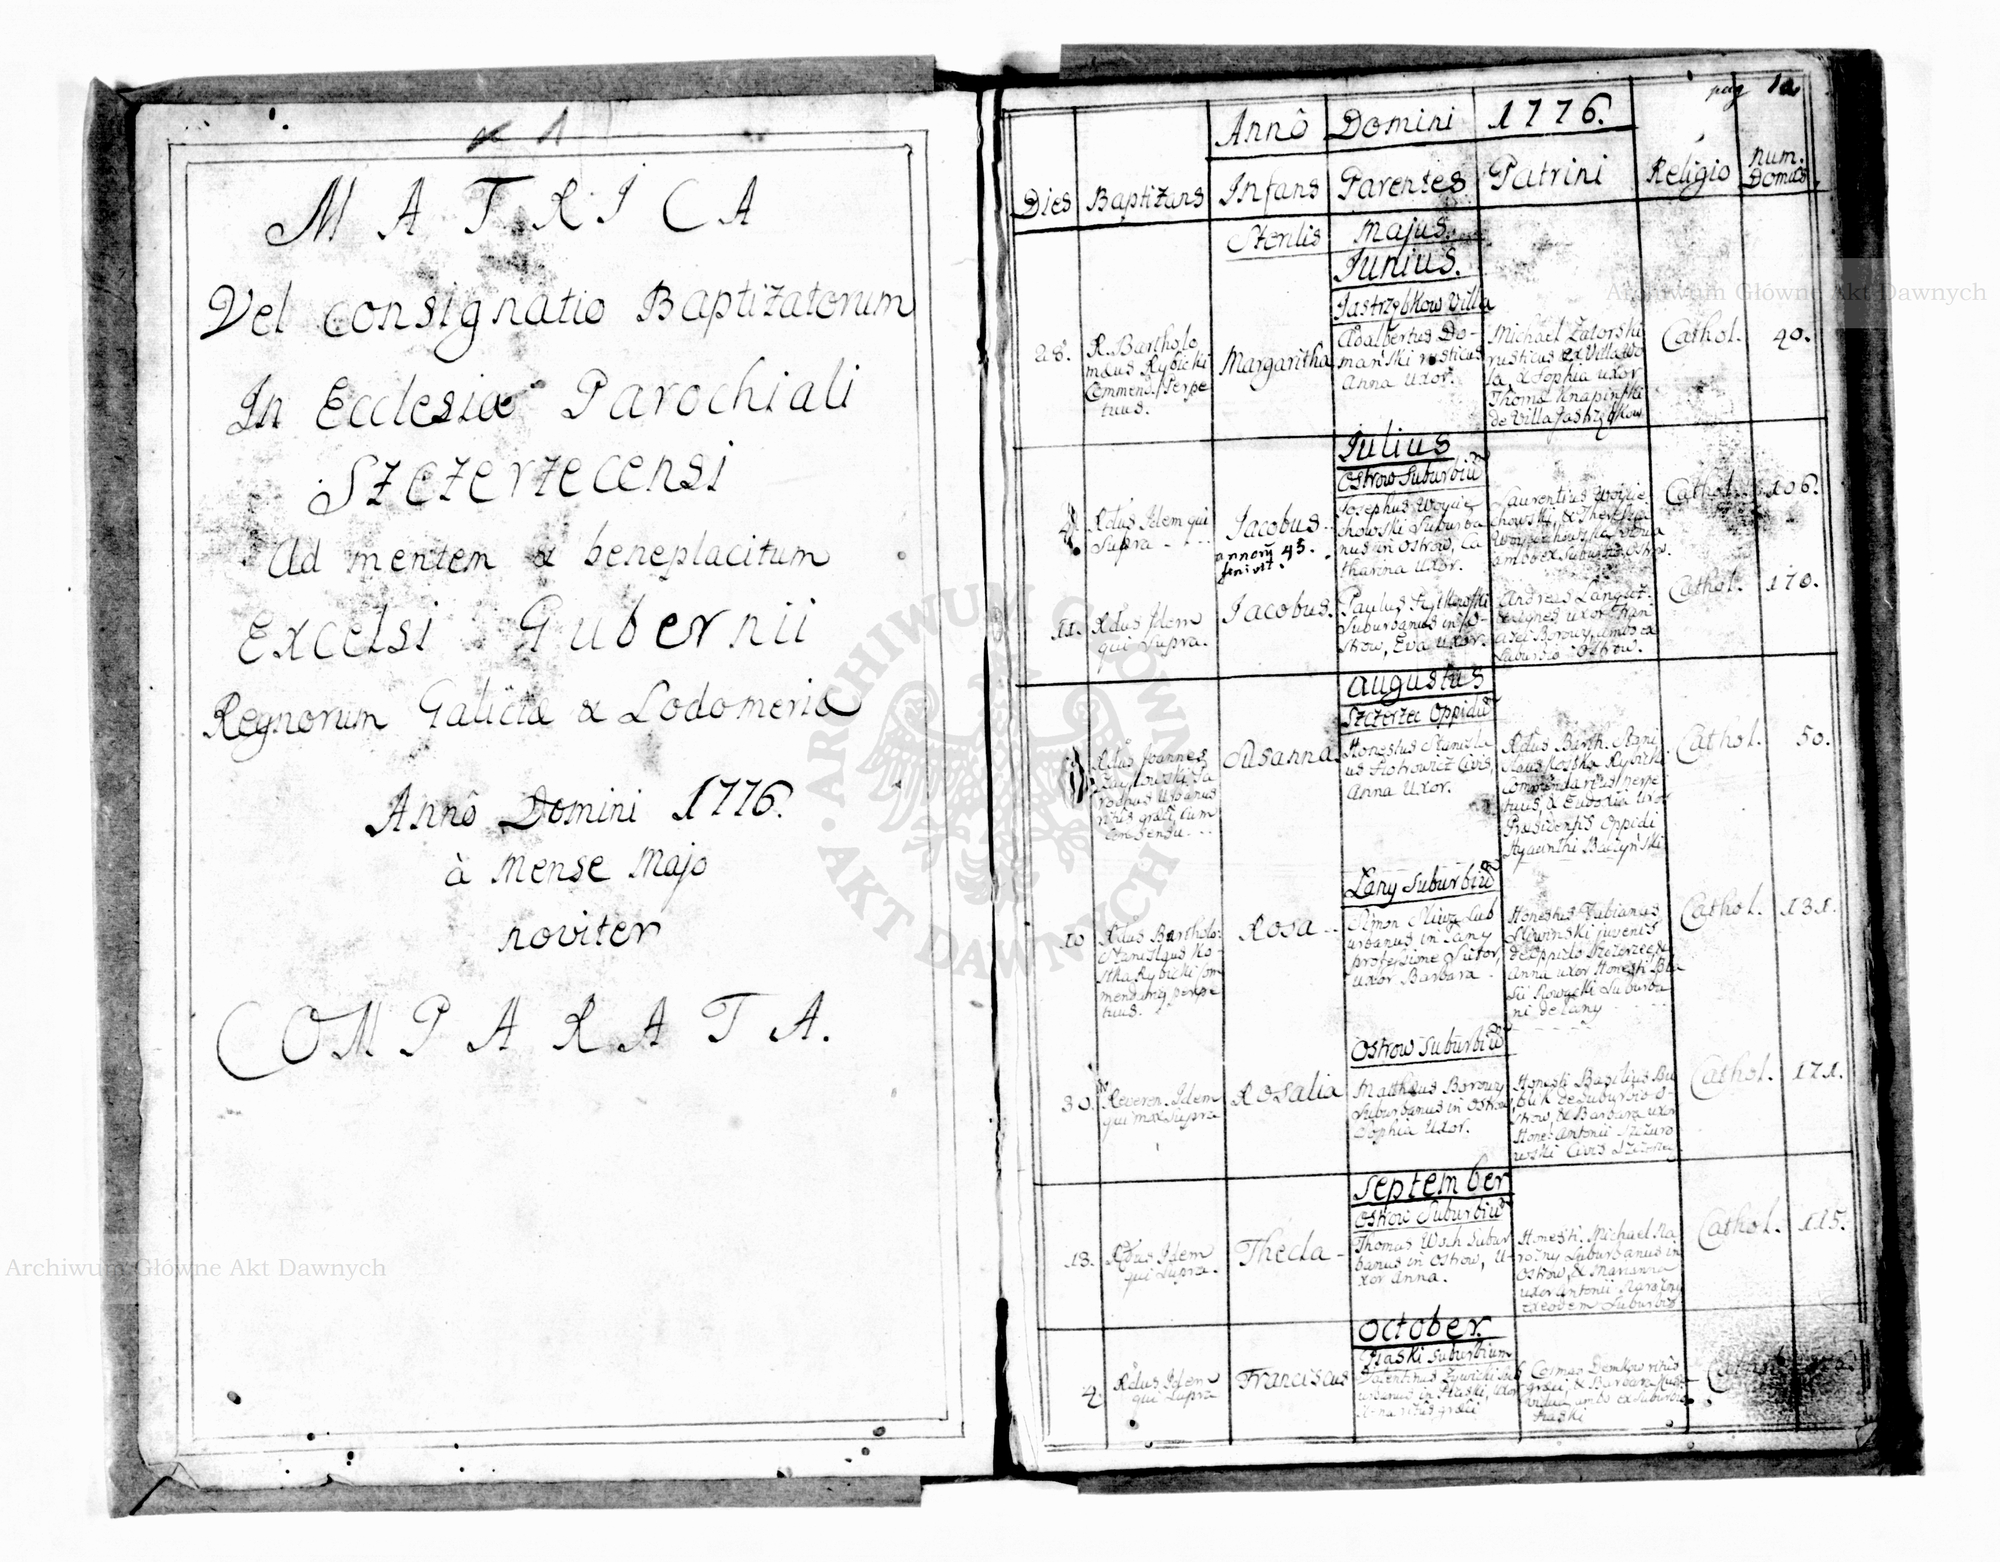 1
MATRICA
Vel consignatio Baptizatorum
In Ecclesiæ Parochiali
Szczerzecensi
Ad mentem & beneplacitum
Excelsi Gubernii
Regnorum Galiciæ & Lodomeriæ
Annô Domini 1776.
à Mense Majo
noviter
COMPARATA.
pag 1
Annô Domini 1776.
Dies Baptizans Infans Parentes Patrini Religio Num. Domus
Sterilis Majus.
Junius.
Jastrzębkow Villa
28.
R. Bartholo
mæus Rybicki
Commend. perpe
tuus.
Margaritha
Adalbertus Do-
manski rusticus
Anna Uxor.
Michael Zatorski
rusticus ex Villa
& Sophia uxor
Thoma Knapinski
de Villa Jastrzębkow
Cathol. 40.
Julius
Ostrow Suburbiū
Rdus Idem qui
Supra
Jacobus
annorū 45.
Josephus Woycie
chowski Suburba
nus in Ostrow, Ca
tharina Uxor.
Laurentius Woycie
chowski, & Theresia
ambo ex Suburbio Ostrow.
Cathol. 106.
11.
Rdus Idem
qui Supra.
Jacobus.
Paulus
Suburbanus in O-
strow, Eva Uxor.
Andreas
Agnes uxor
Borowy, ambo ex
Suburbio Ostrow.
Cathol. 170.
Augustus
Szczerzec Oppidū
Rdus Joannes
rochus Urbanus
ritus græci, cum
Consensu
Susanna
Honestus Stanisla
us Piotrowicz Civis,
Anna Uxor.
Rdus Barth. Stani
slaus Kostka Rybicki
Commendarius perpe
tuus, & Eudoxia Uxor
Præsidentis Oppidi
Hyacinthi Baczyński
Cathol. 50.
Lany Suburbiū
10
Rdus Bartholo:
Stanislaus Ko-
stka Rybicki Com
mendariꝰ perpe
tuus.
Rosa
Simon Sub
urbanus in Lany
professione Sutor,
uxor Barbara
Honestus Fabianus
Sliwinski juvenis
de Oppido Szczerzec &
Anna uxor Honesti Bla
sii Nowacki Suburba
ni de Lany
Cathol. 131.
Ostrow Suburbiū
30.
Reveren. Idem
qui mox Supra
Rosalia
Matthæus Borowy
Suburbanus in Ostrow,
Sophia Uxor.
Honesti Basilius Bu
blik de Suburbio O-
strow, & Barbara uxor
Hones: Antonii Szczuro
wski Civis Szczerzec
Cathol. 171.
September
Ostrow Suburbiū
13.
Rdus Idem
qui Supra.
Thecla
Thomas Wsch Subur
banus in Ostrow, U-
xor Anna.
Honesti. Michael Na
rożny Suburbanus in
Ostrow, & Marianna
uxor Antonii Narożny
ex eodem Suburbio
Cathol. 115.
October.
Piaski Suburbium
4.
Rdus Idem
qui Supra
Franciscus
Valentinus Zywicki Sub
urbanus in Piaski, Uxor
ritus græci
Cosmas Demkow ritus
græci, & Barbara
vidua, ambo ex Suburbio
Piaski
Archiwum Główne Akt Dawnych
Archiwum Główne Akt Dawnych
ARCHIWUM GŁÓWNE
AKT DAWNYCH